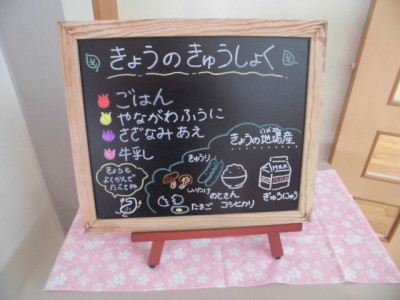 きょうのきゅうしょく
ごはん
やながわふうに
さざなみあえ
牛乳
きょうの地場産
じばさん
きゅうり
MILK
しいたけ
のとさん
コシヒカリ
ぎゅうにゅう
たまご
きょうも
よくかんで